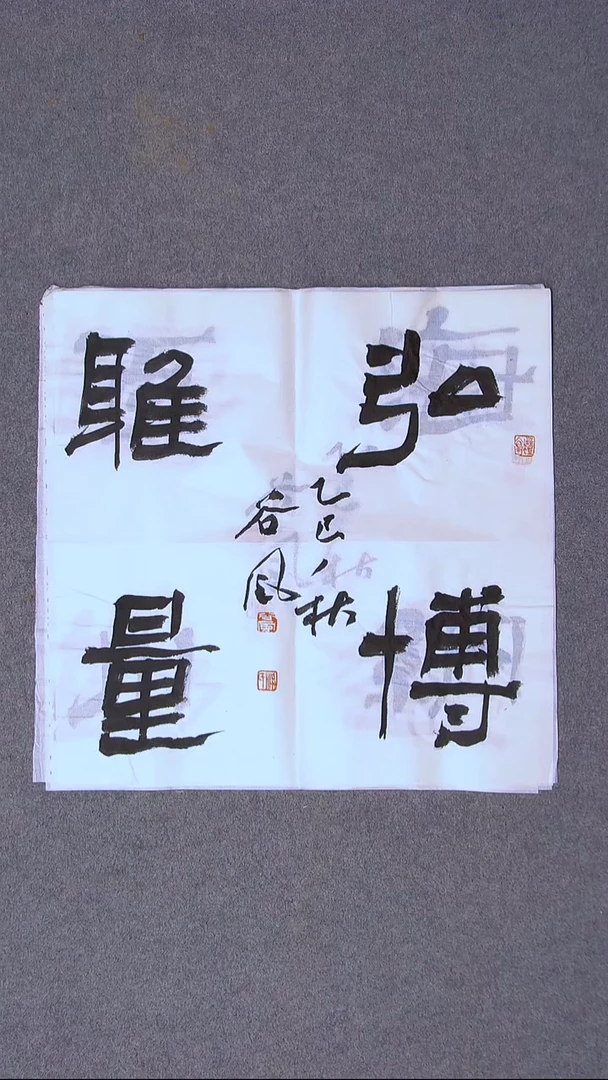 弘博
雅量
乙巳秋
谷风